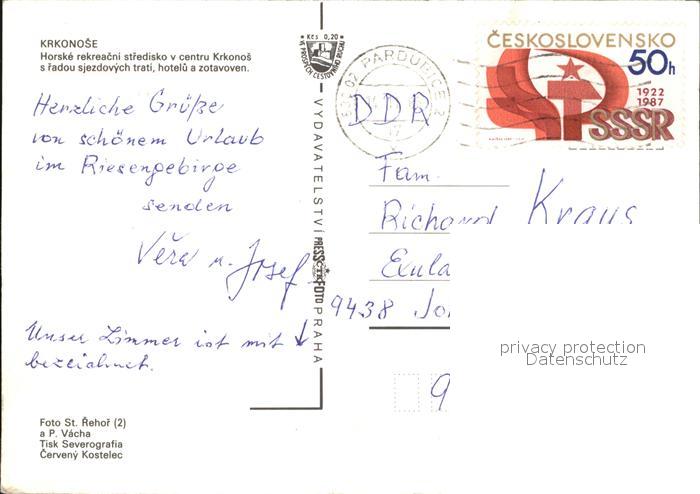 KRKONOŠE
Horské rekreační středisko v centru Krkonoš
s řadou sjezdových tratí, hotelů a zotavoven.
Herzliche Grüße
von schönem Urlaub
im Riesengebirge
senden
Věra u. Josef
Unser Zimmer ist mit ↓
bezeichnet.
Foto St. Řehoř (2)
a P. Vácha
Tisk Severografia
Červený Kostelec
Kčs 0,20
VE PROSPĚCH CESTOVNÍHO RUCHU
VYDAVATELSTVÍ PRESSFOTO PRAHA
ČTK
PARDUBICE 2
ČESKOSLOVENSKO
50h
1922
1987
SSSR
DDR
Fam.
Richard Kraus
Eula
9438 Jo
9
privacy protection
Datenschutz